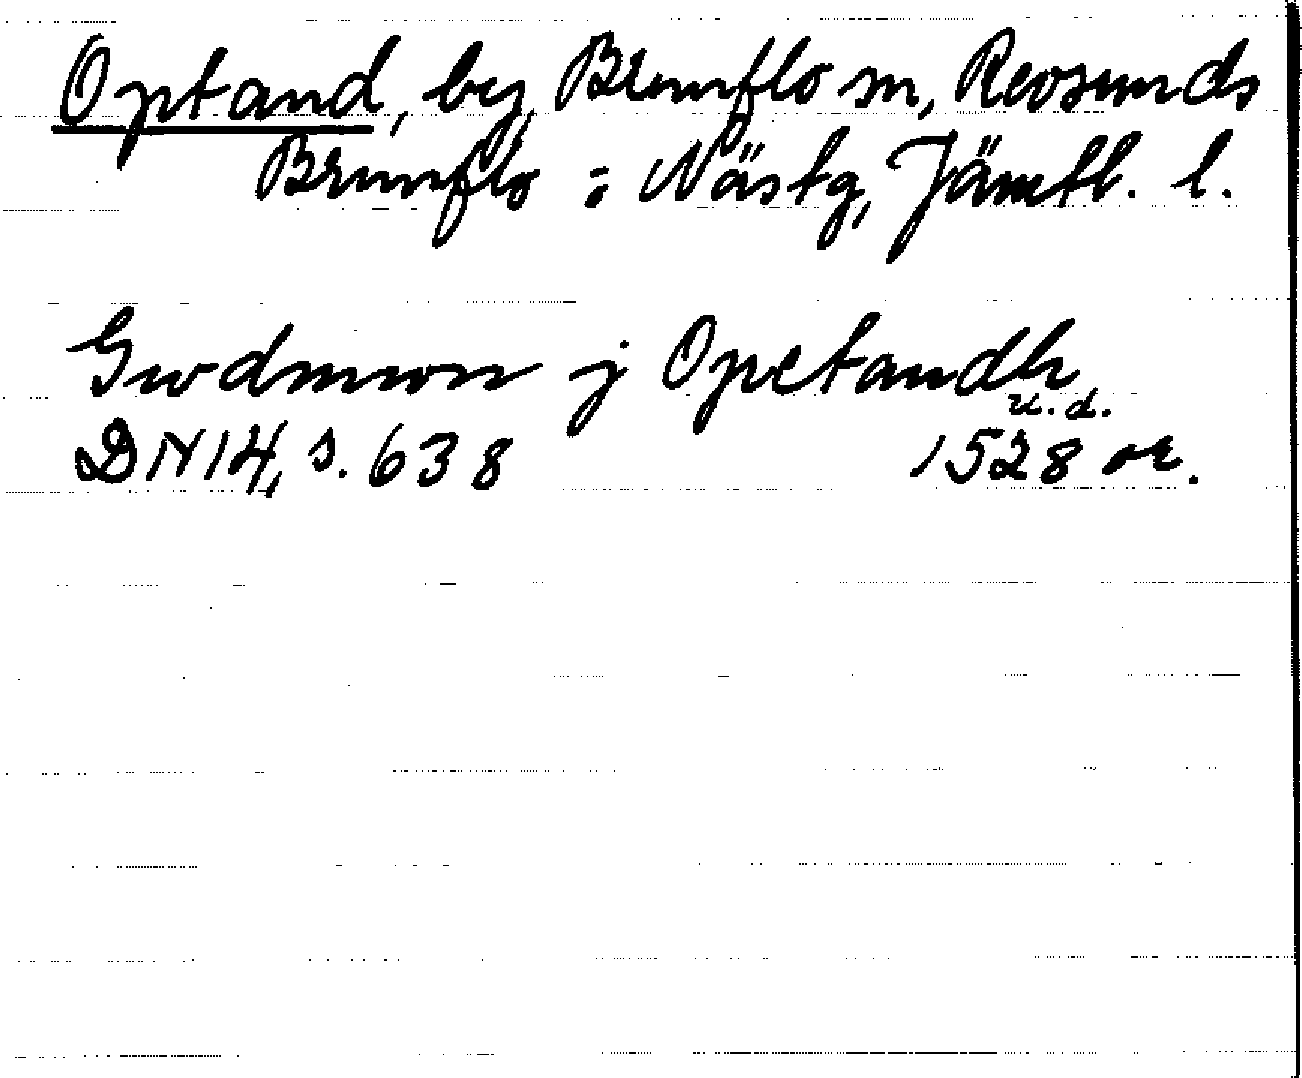 Optand, by, Brunflo sn, Revsunds
Brunflo o Näs tg, Jämtl. l.
Gwdmwn j Opetandh
u.d.
DN 14, s. 638 1528 or.